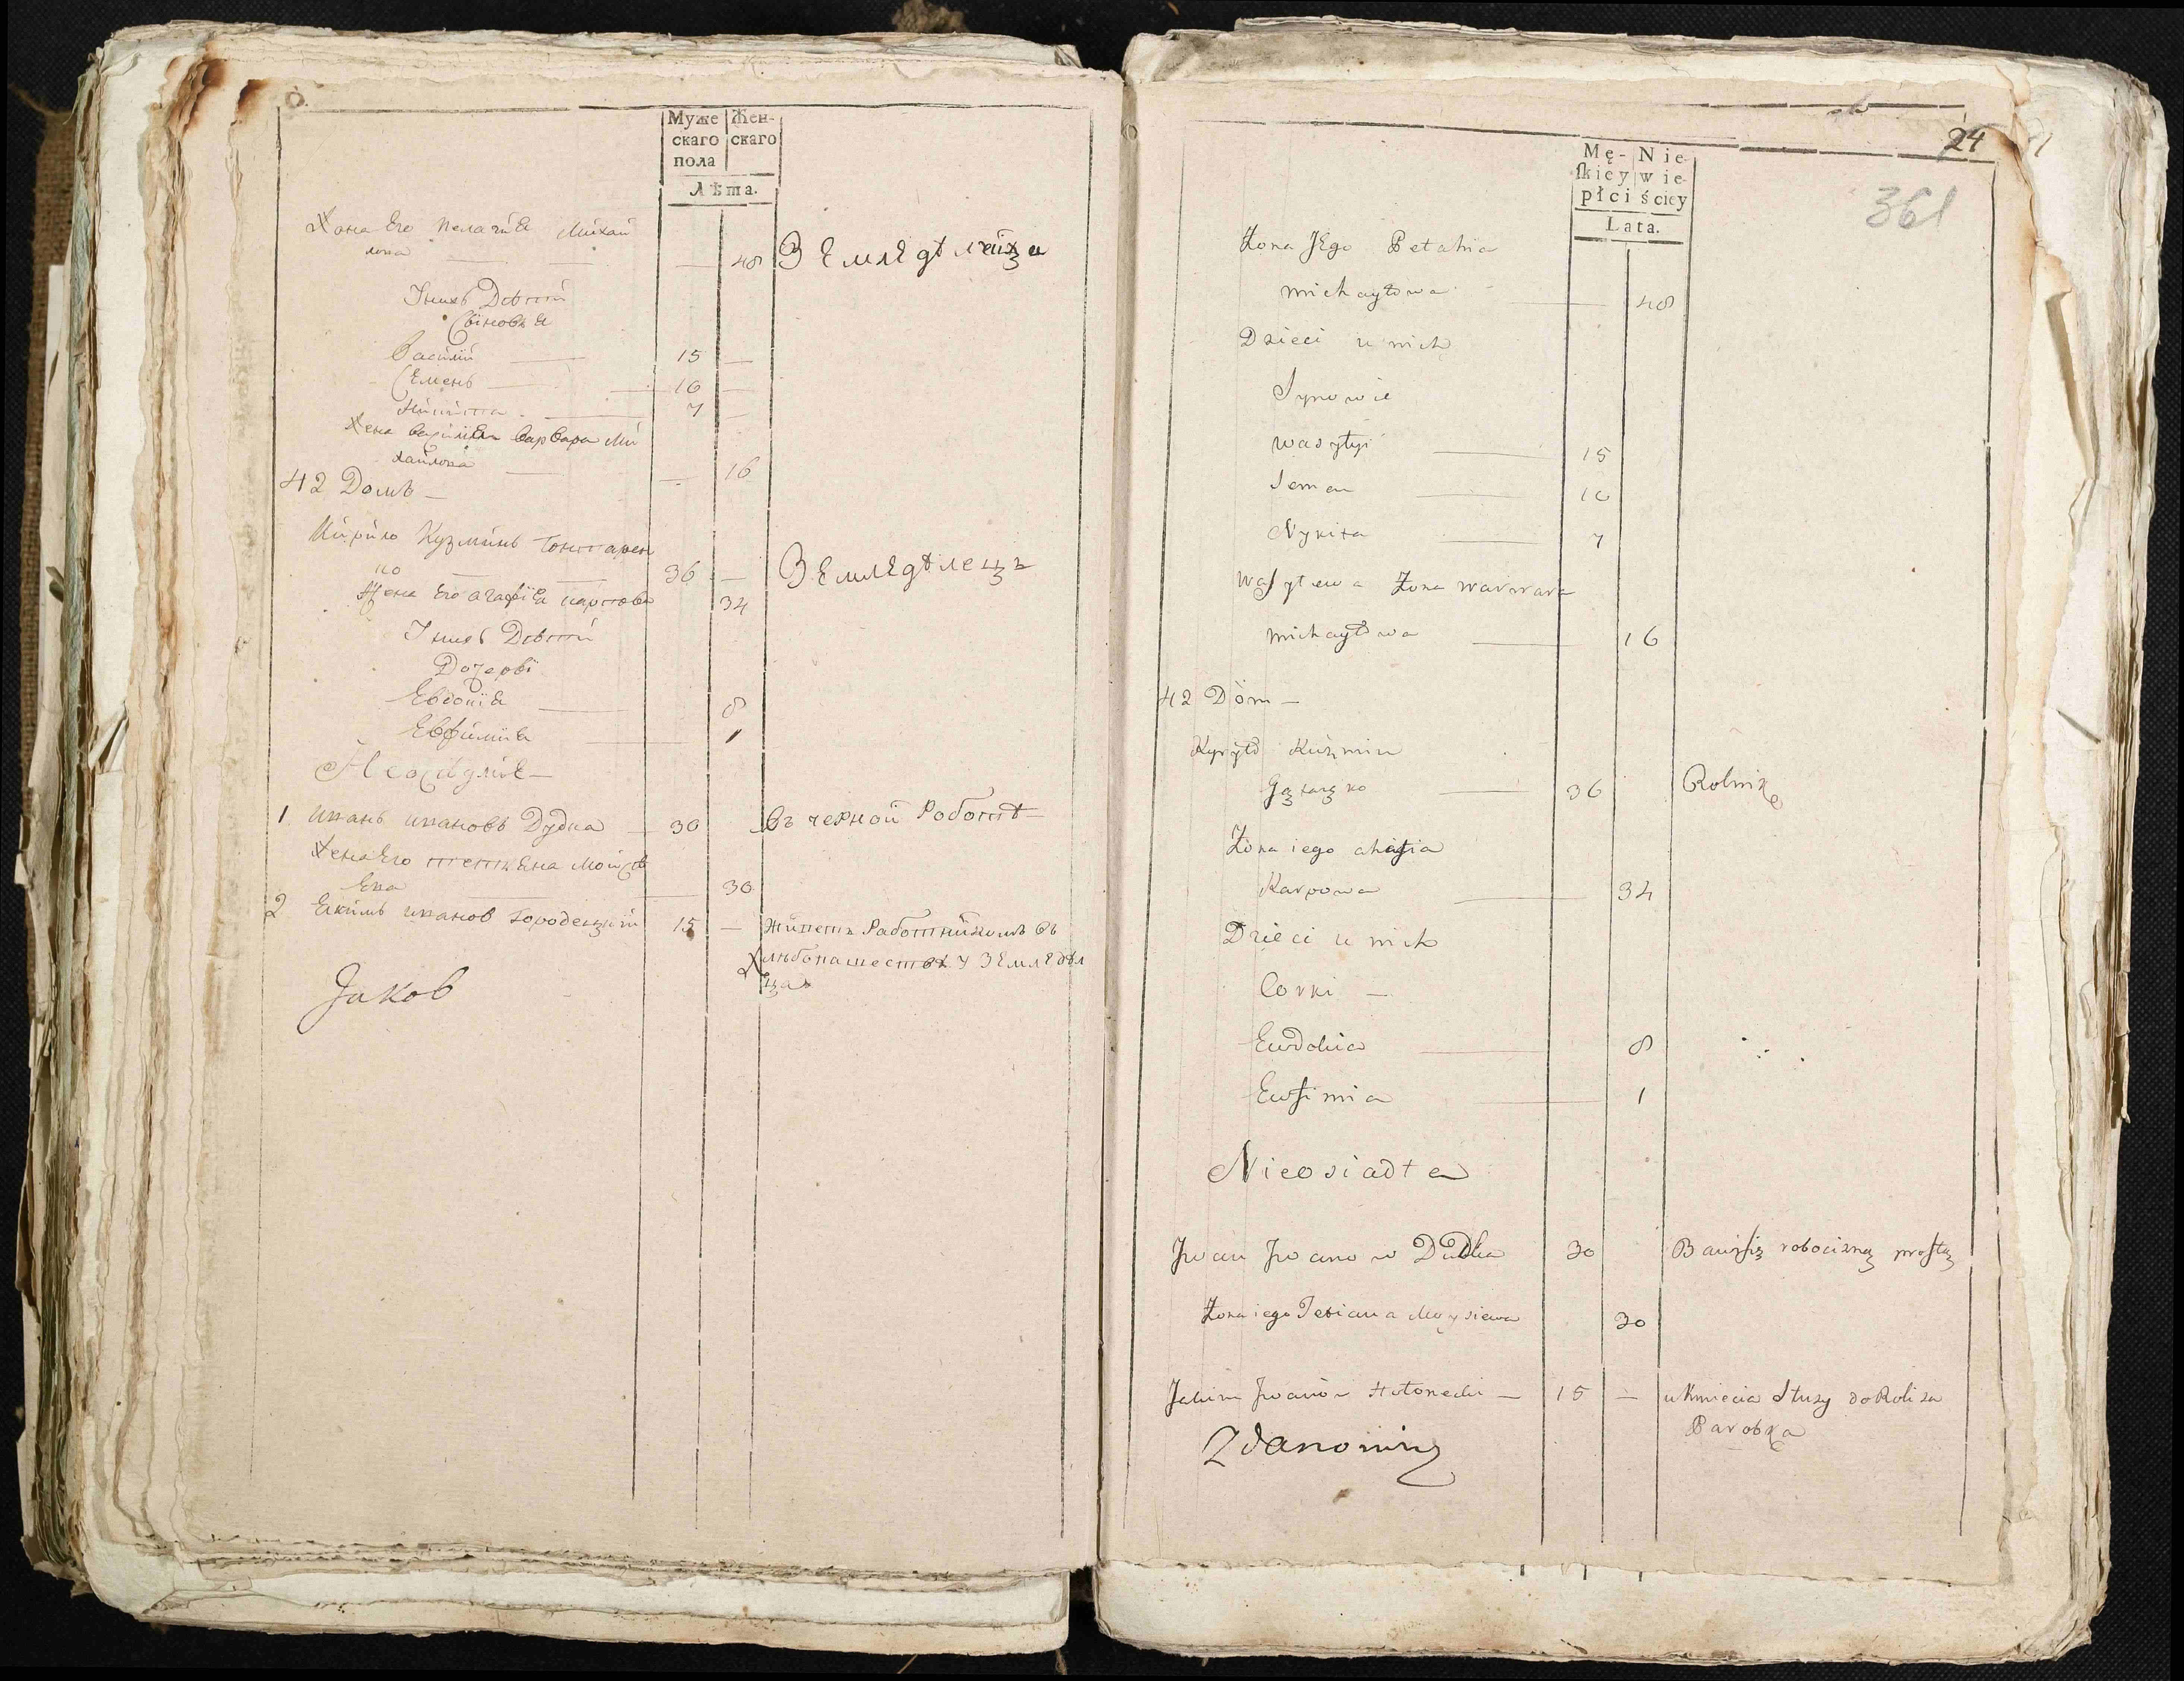 Муже
скаго
пола
Жен-
скаго
Лѣта.
Жена Его Пелагиѣ Михай
лова — — — 48 Землѣдѣлица
У нихъ Дѣти
Сыновья
Василий — 15 —
Семенъ — 10 —
Никита — 7 —
Жена Василиева Варвара Ми
хайлова — — 16
42 Домъ —
Кирило Кузминъ Гончарен
ко — — 36 — Землѣдѣлецъ
Жена Его Агафия Карпова 34
У нихъ Дѣти
Дочери
Евдокия — 8
Евфимия — 1
Неосѣдлие —
1 Иванъ Ивановъ Дудка — 30 Въ черной Работѣ —
Жена Его Тетяна Мойсѣ
Ева — 30
2 Екимъ Иванов Городецкий 15 — Живетъ Работникомъ въ
Хлѣбопашествѣ у Землѣдѣл
ца
Jaков
24
361
Mę-
skiey
płci
Nie-
wie-
ściey
Lata.
Żona Jego Pelahia
Michayłowa — 48
Dzieci u nich
Synowie
Wasylyi — 15
Semen — 10
Nykita — 7
Wasylewa Żona Warwara
Michayłowa — 16
42 Dóm —
Kyryło Kuźmin
— 36 Rolnik
Żona iego Ahafia
Karpowa — 34
Dzieci u nich
Corki —
Ewdokia — 8
Ewfimia — 1
Nieosiadłe
Jwan Jwanow Dudka 30 Bawi się robocizną prostą
Żona iego Tetiana Moysiewa 30
Jakim Jwanów — 15 — u Kmiecia Służy do Roli za
Parobka
Zdanowicz